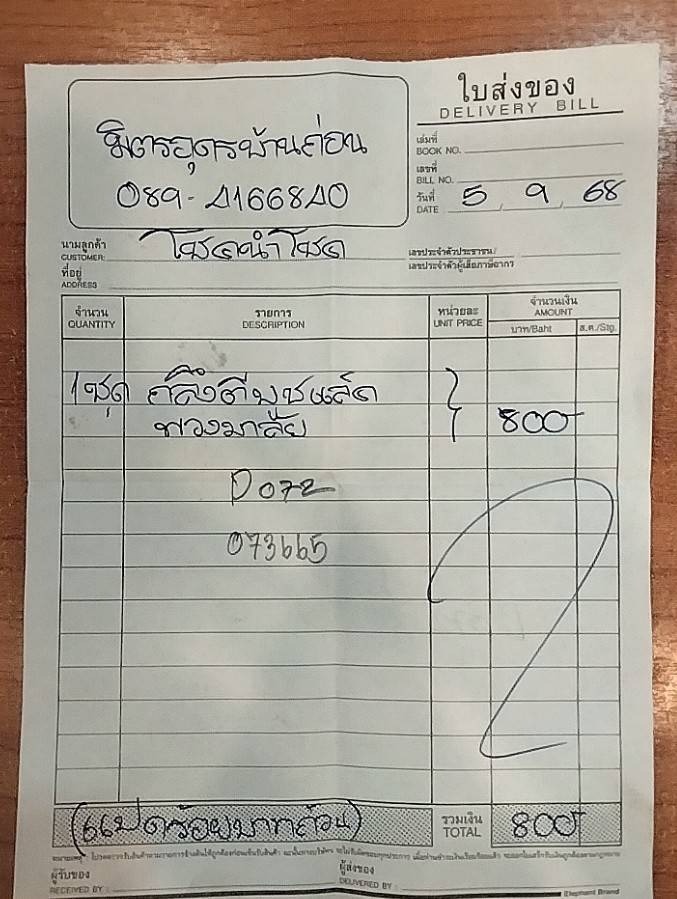 ใบส่งของ
DELIVERY BILL
มิตรอุดรบ้านถ่อน
089-4166840
เล่มที่
BOOK NO.
เลขที่
BILL NO.
วันที่ 5 9 68
DATE
นามลูกค้า โชคนำโชค
CUSTOMER:
เลขประจำตัวประชาชน/
เลขประจำตัวผู้เสียภาษีอากร
ที่อยู่
ADDRESS
จำนวน รายการ หน่วยละ จำนวนเงิน
QUANTITY DESCRIPTION UNIT PRICE AMOUNT
บาท/Baht ส.ต./Stg.
1 ชุด กลึงตีบูชแส์ด
พวงมาลัย 800
D 072
073665
(แปดร้อยบาทถ้วน) รวมเงิน 800
TOTAL
ผู้รับของ ผู้ส่งของ
RECEIVED BY : DELIVERED BY :
Elephant Brand